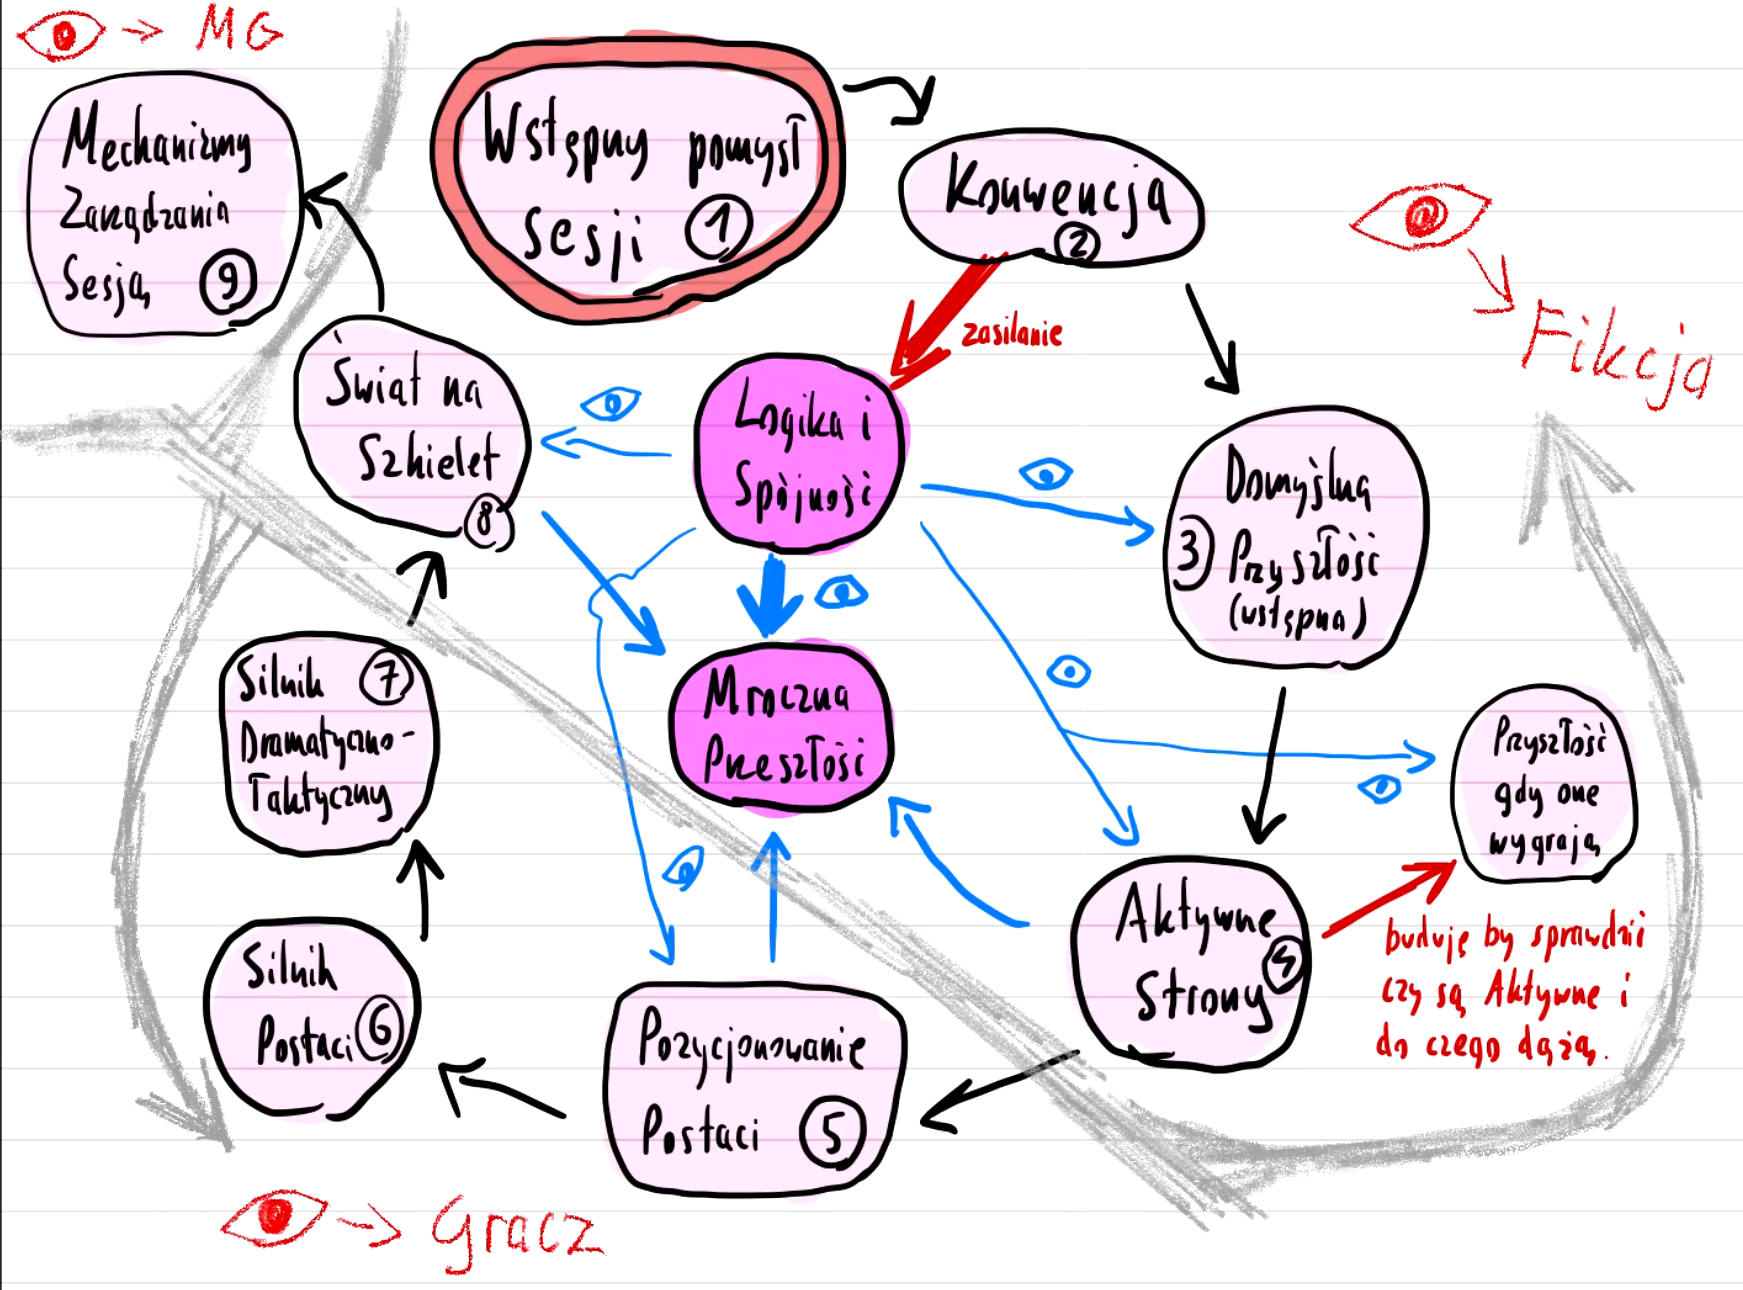 → MG
Mechanizmy
Zarządzania
Sesją ⑨
Wstępny pomysł
sesji ①
Konwencja
②
zasilanie
Fikcja
Świat na
Szkielet
⑧
Logika i
Spójność
Domyślna
③ Przyszłość
(wstępna)
Silnik ⑦
Dramatyczno-
Taktyczny
Mroczna
Przeszłość
Przyszłość
gdy one
wygrają
Aktywne
Strony ④
buduję by sprawdzić
czy są Aktywne i
do czego dążą.
Silnik
Postaci ⑥
Pozycjonowanie
Postaci ⑤
→ Gracz